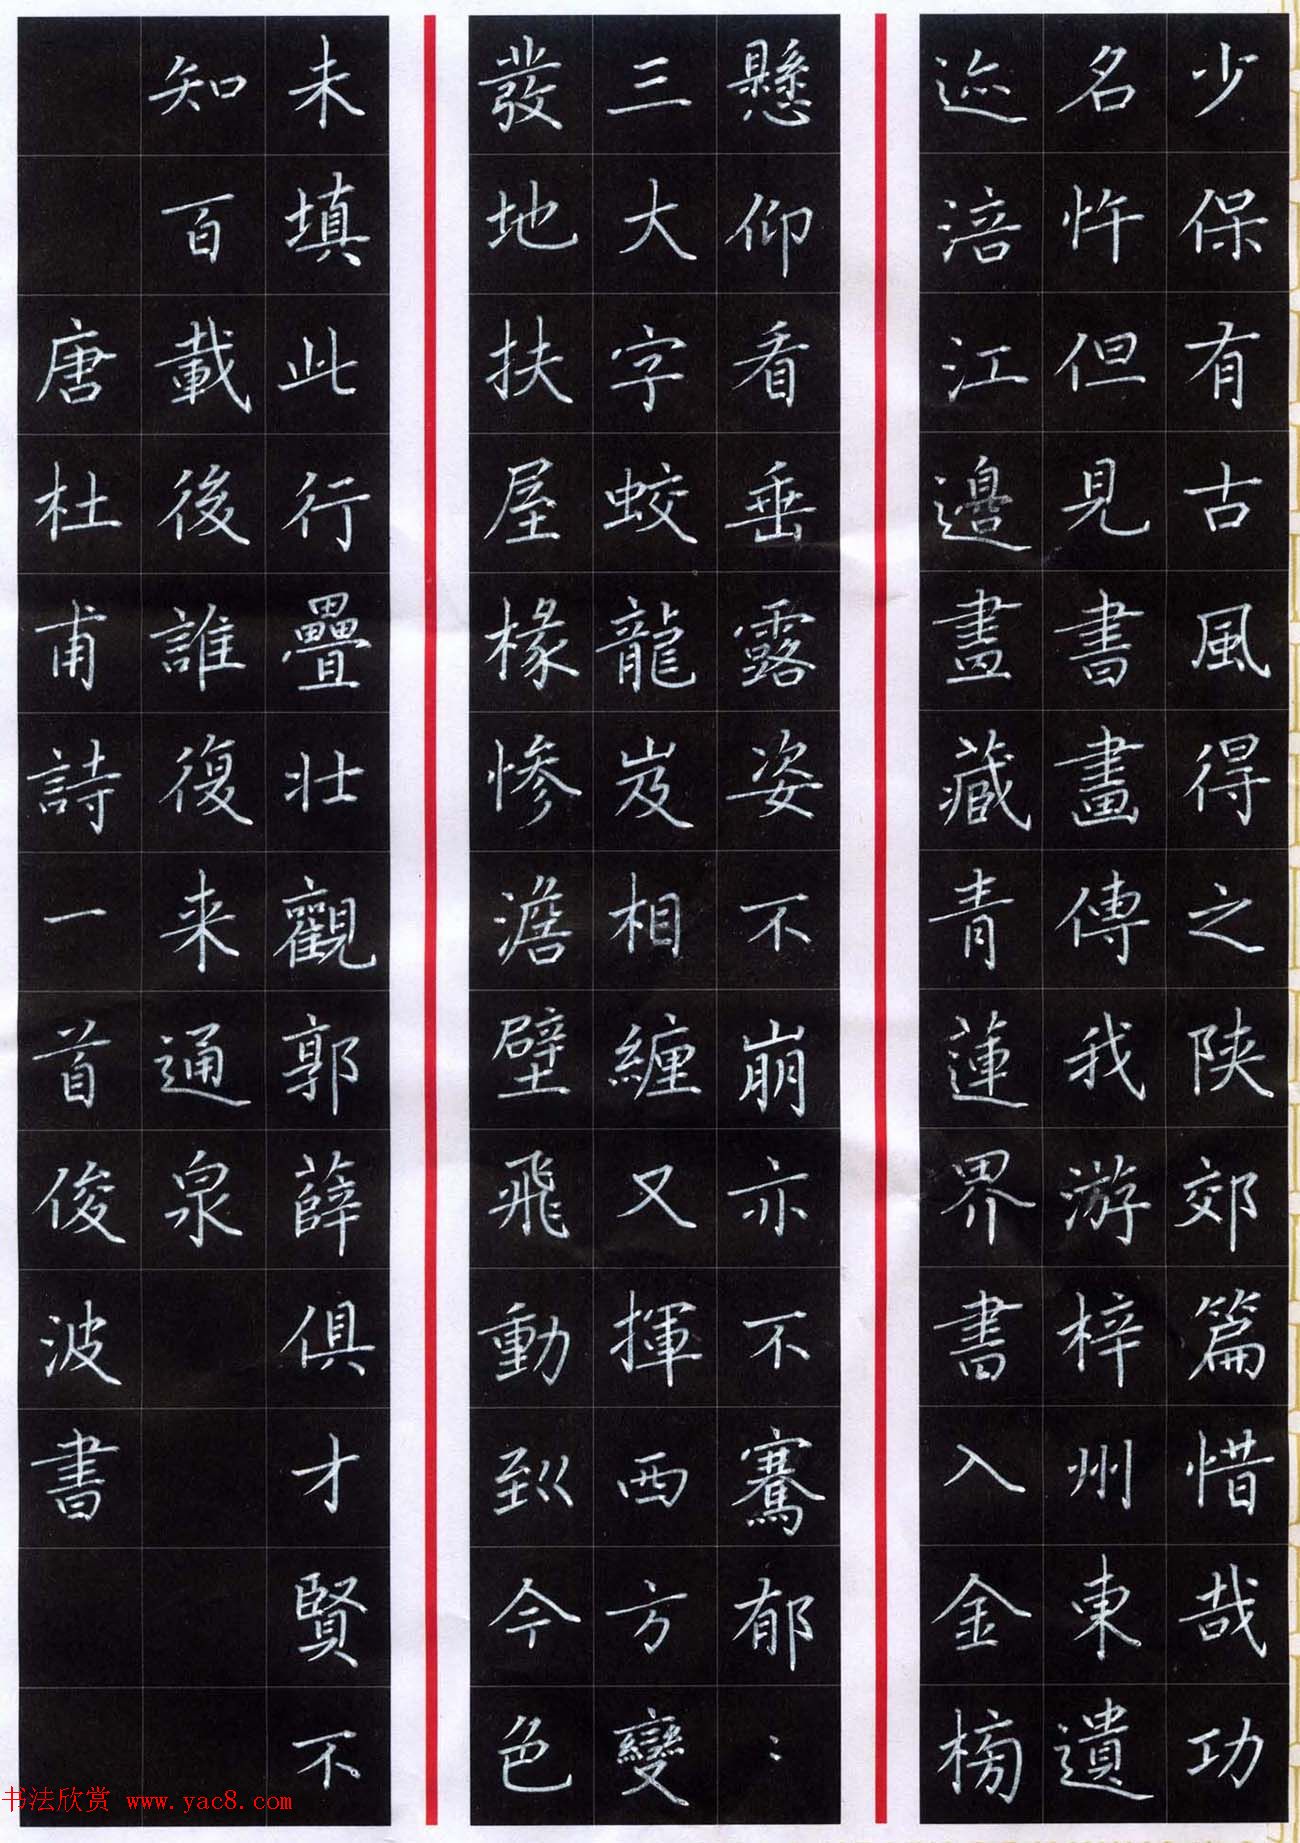 少保有古風得之陝郊篇惜哉功
名忤但見書畫傳我游梓州東遺
迹涪江邊畫藏青蓮界書入金榜
懸仰看垂露姿不崩亦不騫郁：
三大字蛟龍岌相纏又揮西方變
發地扶屋椽慘澹壁飛動到今色
未填此行疊壯觀郭薛俱才賢不
知百載後誰復来通泉
唐杜甫詩一首俊波書
书法欣赏 www.yac8.com